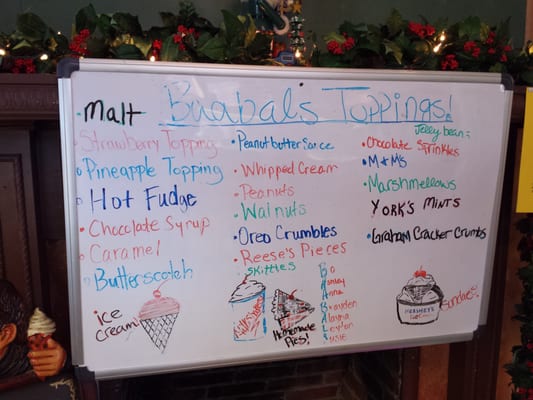 Baabals Toppings!
• Malt
• Strawberry Topping
• Pineapple Topping
• Hot Fudge
• Chocolate Syrup
• Caramel
• Butterscotch
• Peanutbutter Sauce
• Whipped Cream
• Peanuts
• Walnuts
• Oreo Crumbles
• Reese's Pieces
Skittles
Jelly bean
• Chocolate Sprinkles
• M+M's
• Marshmellows
York's Mints
• Graham Cracker Crumbs
ice cream!
Homemade Pies!
Sundaes!
HERSHEY'S